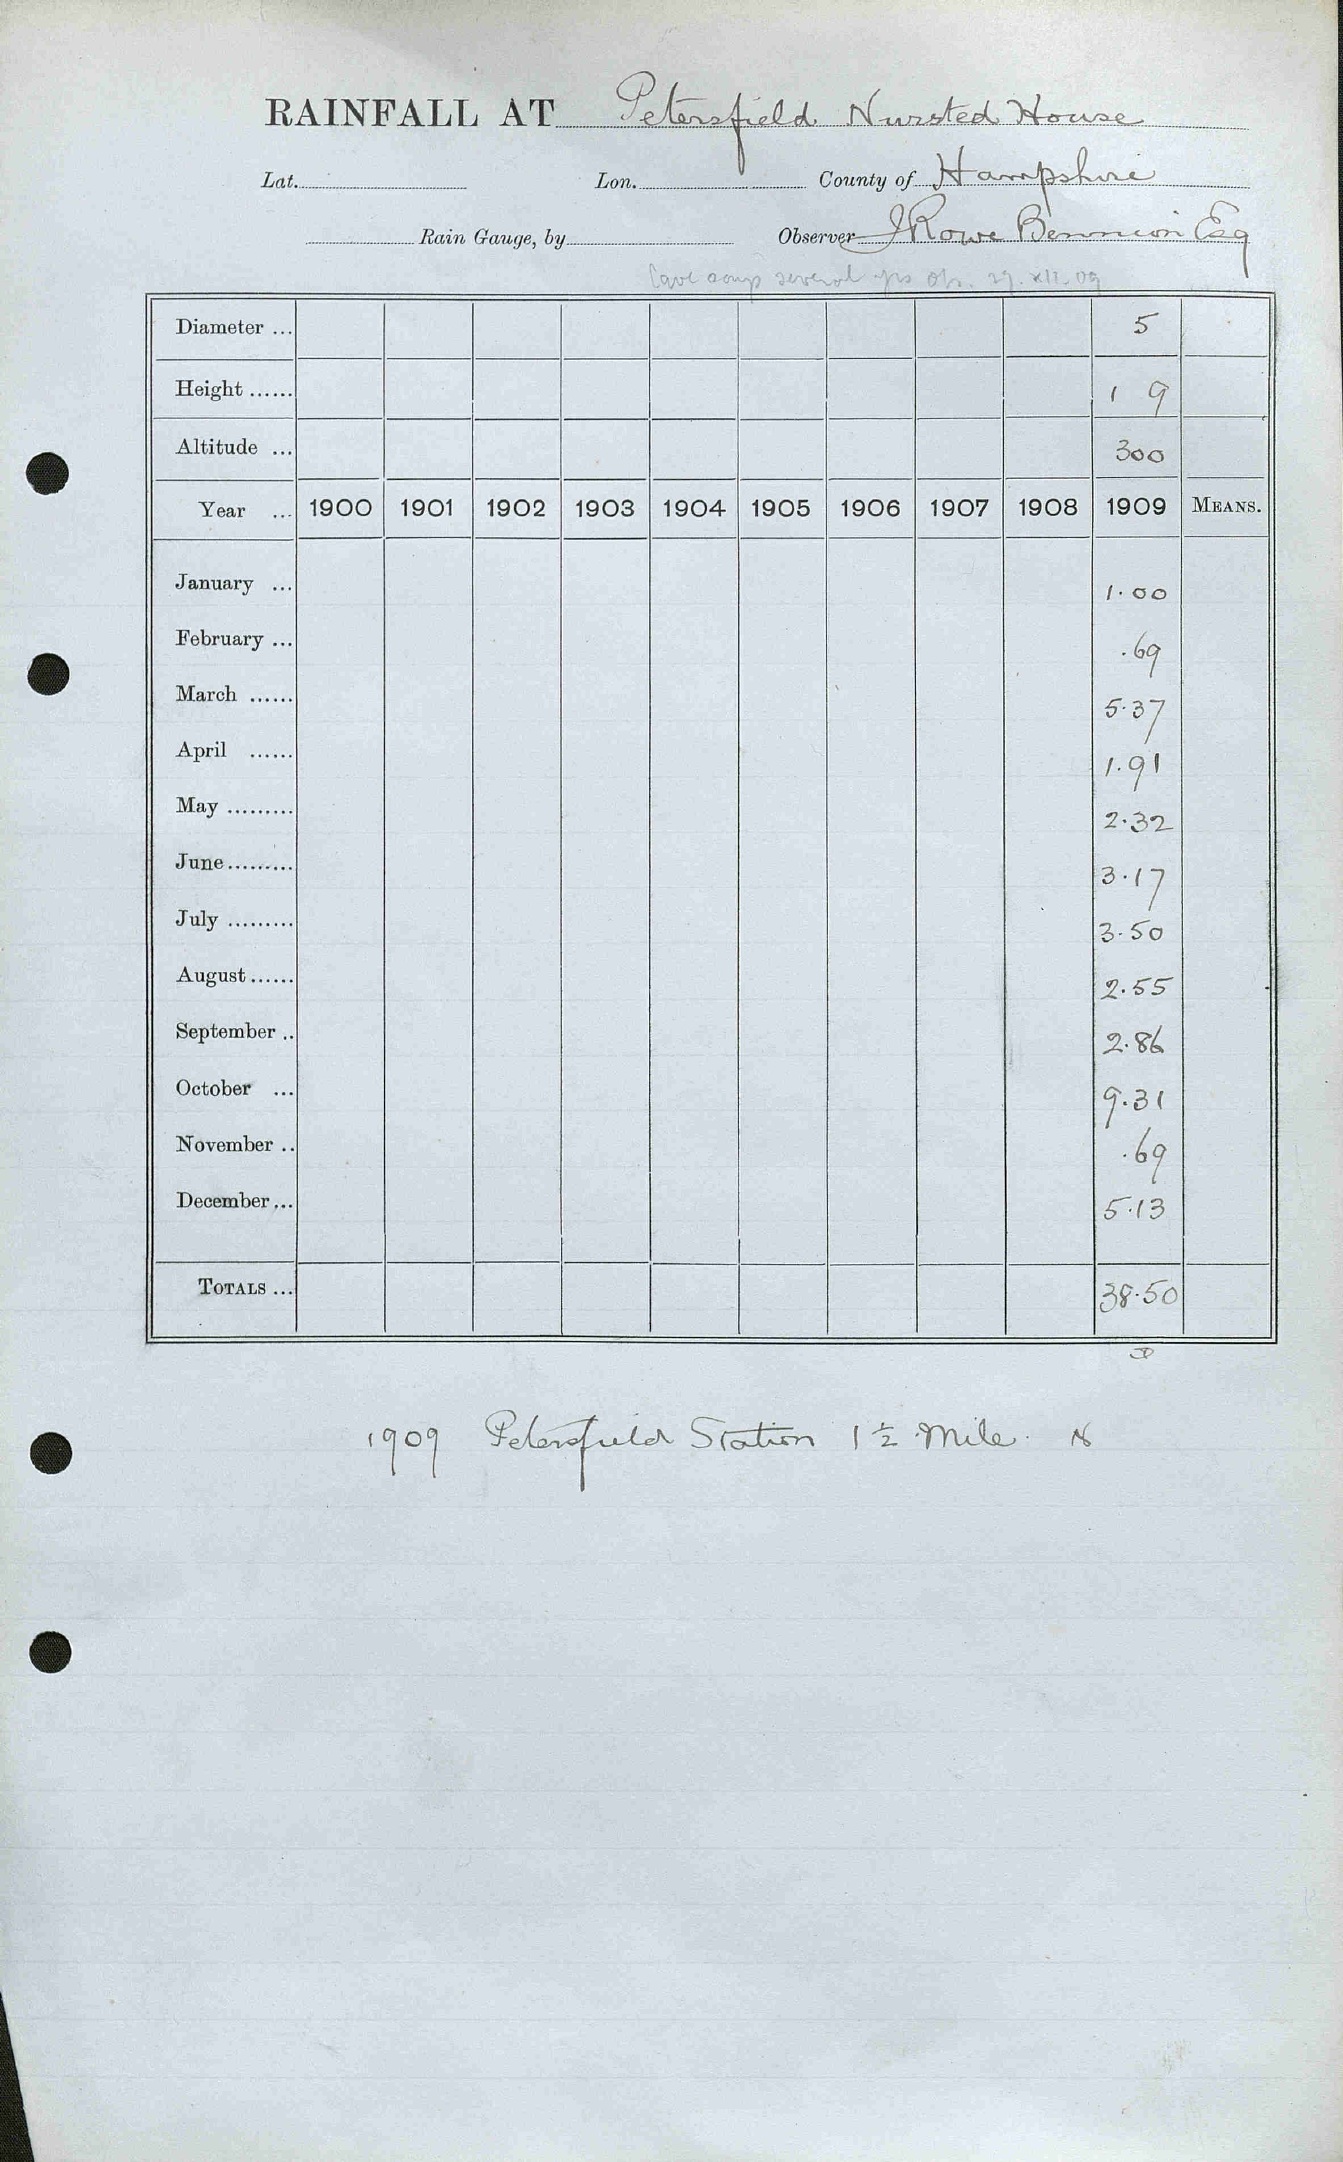 RAINFALL AT Petersfield Nursted House
Lat. Lon. County of Hampshire
Rain Gauge, by Observer J Rowe Bennion Esq
several yrs 29.XII.09
Diameter ... 5
Height ...... 1 9
Altitude ... 300
Year ... 1900 1901 1902 1903 1904 1905 1906 1907 1908 1909 MEANS.
January ... 1.00
February ... .69
March ...... 5.37
April ...... 1.91
May ......... 2.32
June......... 3.17
July ......... 3.50
August...... 2.55
September .. 2.86
October ... 9.31
November .. .69
December... 5.13
TOTALS ... 38.50
1909 Petersfield Station 1½ Mile N